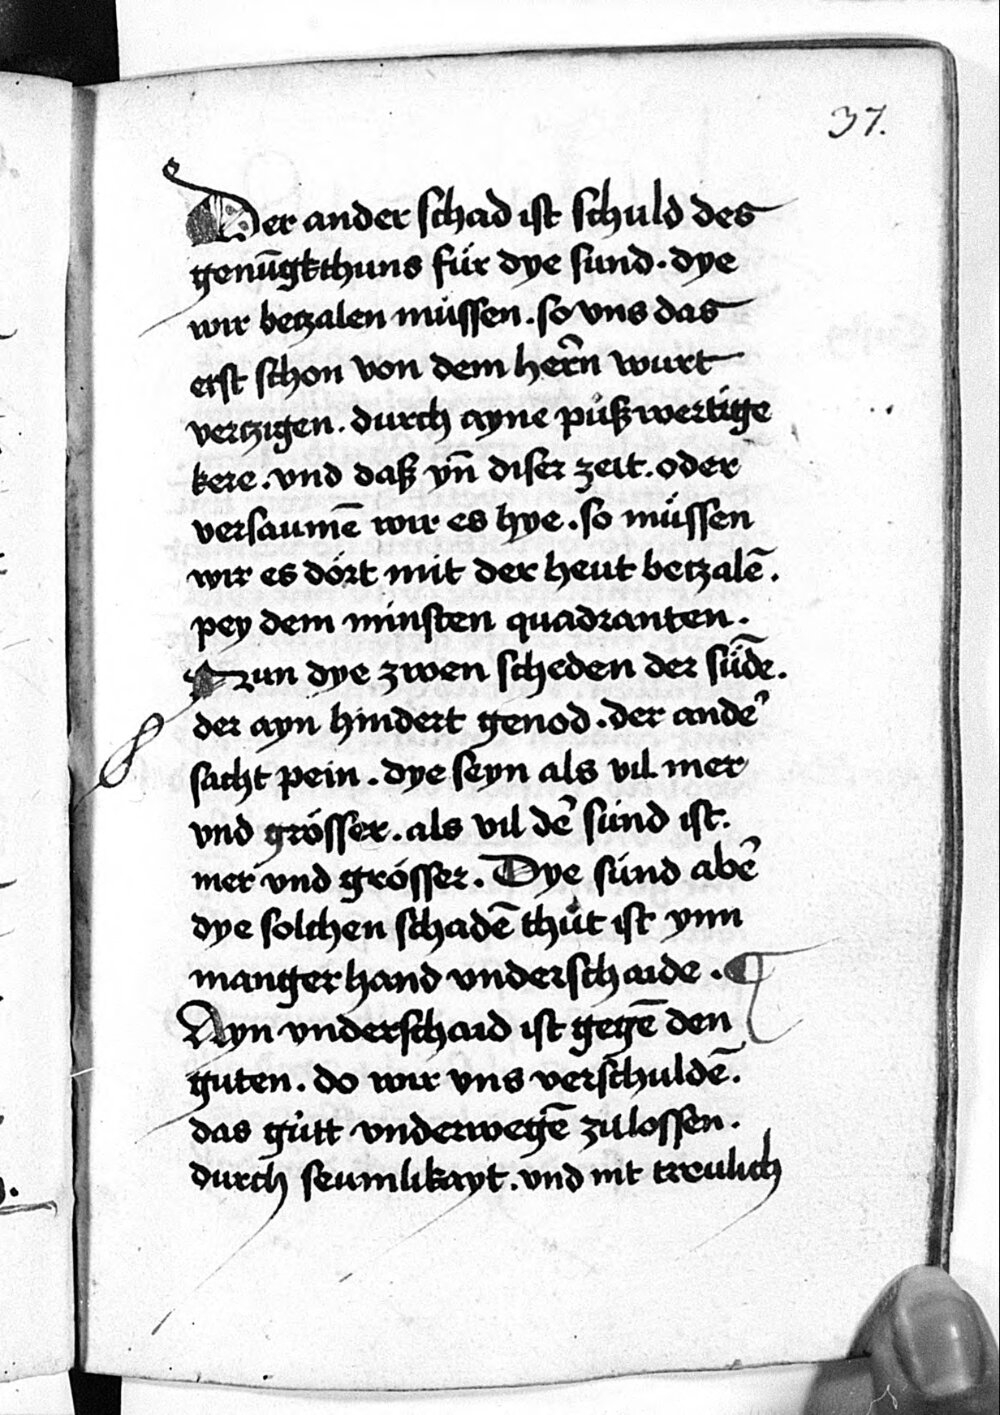 37.
Der ander schad ist schuld des
genūgkthuns für dye sund. dye
wir betzalen müssen. so vns das
erst schon von dem herñ wurt
vertzigen. durch ayne půßwertige
kere. vnd daß yñ diser zeit. oder
versaumē wir es hye. so müssen
wir es dórt mit der heut betzalē.
pey dem minsten quadranten.
Nun dye zwen scheden der sǖde.
der ayn hindert genod. der andeꝰ
sacht pein. dye seyn als vil mer
vnd grösser. als vil deꝰ sünd ist.
mer vnd grösser. Dye sünd abeꝰ
dye solchen schadē thůt ist ynn
mangerhand vnderschaide. ¶
Ayn vnderschaid ist gegē den
guten. do wir vns verschuldē.
das gůtt vnderwegē zulossen.
durch seumlikayt. vnd nit treulich